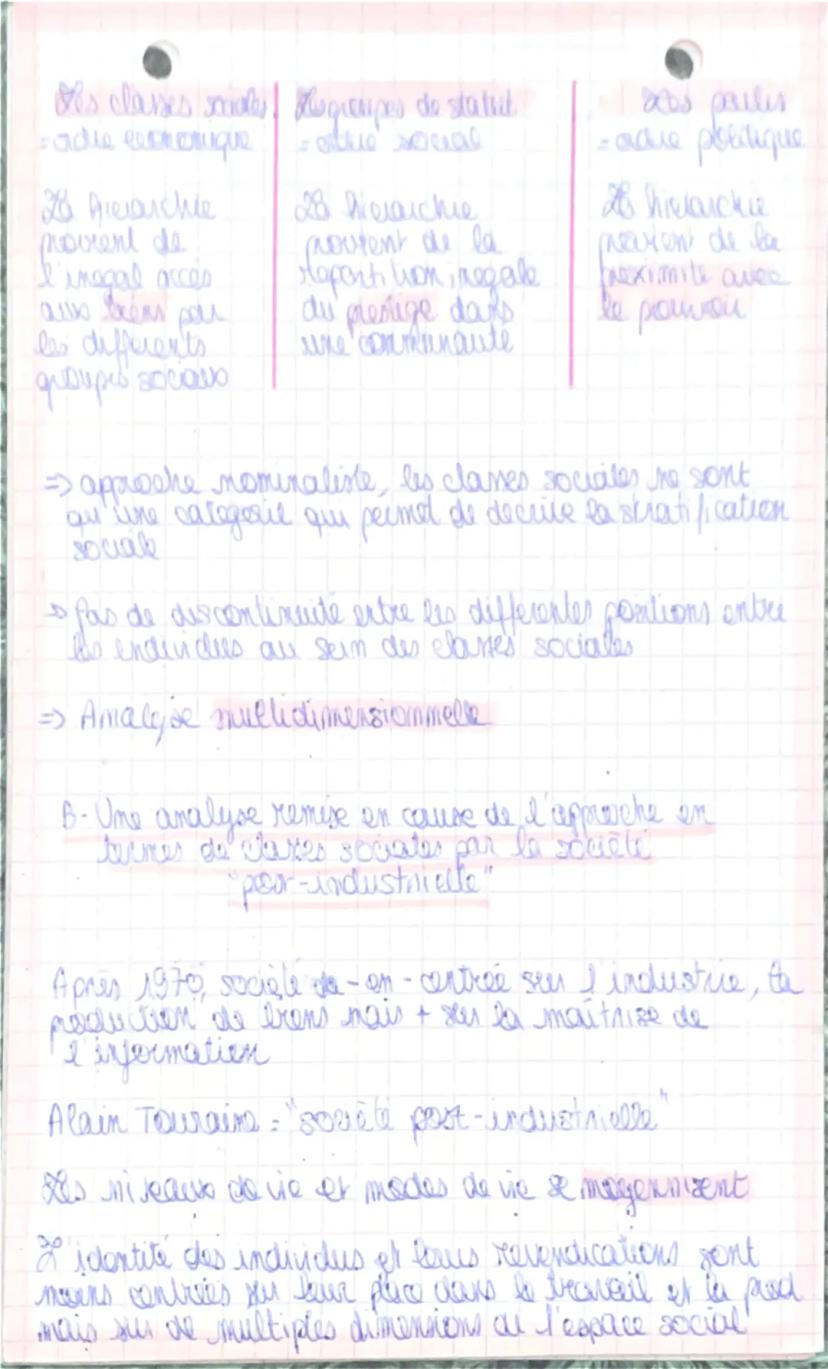 Les classes sociales
= ordre economique
La hierarchie
provient de
l'inegal accès
aux biens par
les differents
groupes sociaux
Les groupes de statut
= ordre social
La hierarchie
provient de la
repartition inegale
du prestige dans
une communauté
Les partis
= ordre politique
La hierarchie
provient de la
proximité avec
le pouvoir
=> approche nominaliste, les classes sociales ne sont
qu'une categorie qui permet de decrire la stratification
sociale
=> Pas de discontinuité entre les differentes positions entre
les individus au sein des classes sociales
=> Analyse multidimensionnelle
B- Une analyse remise en cause de l'approche en
termes de classes sociales par la société
"post-industrielle"
Après 1970, société de -en- centrée sur l'industrie, la
production de biens mais + sur la maîtrise de
l'information
Alain Touraine = "société post-industrielle"
Les niveaux de vie et modes de vie se moyennisent
L'identité des individus et leurs revendications sont
moins centrées sur leur place dans le travail et la prod
mais sur de multiples dimensions de l'espace social